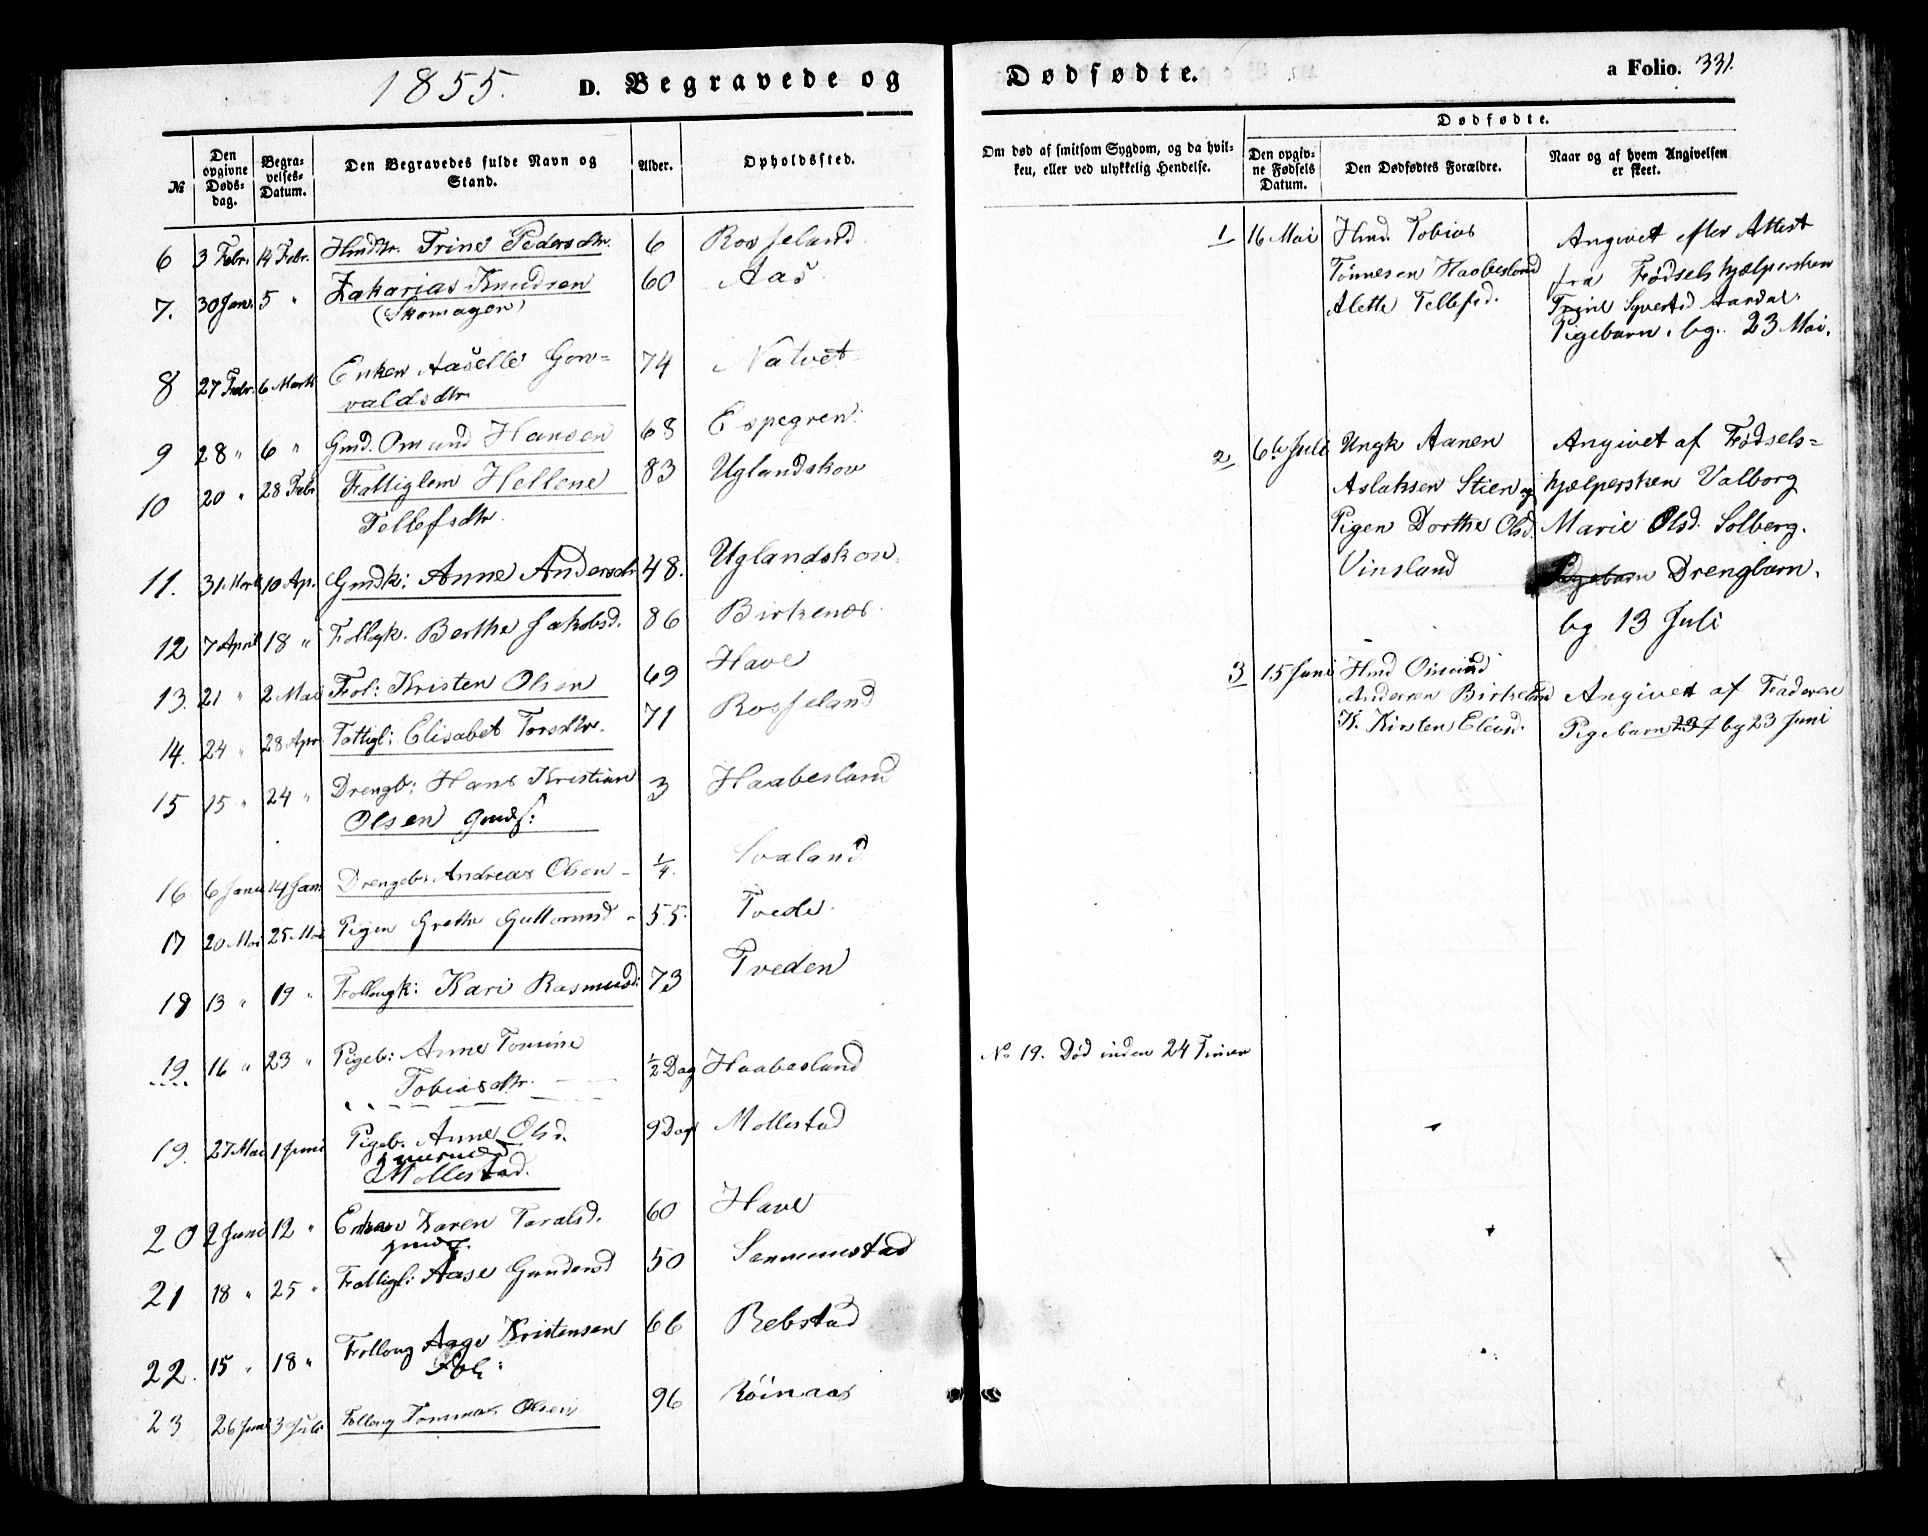 1855.
D. Begravede og
Dødfødte.
a Folio. 331.
№
Den opgivne Døds-dag.
Begra-velses-Datum.
Den Begravedes fulde Navn og Stand.
Alder.
Opholdssted.
Om død af smitsom Sygdom, og da hvil-ken, eller ved ulykkelig Hendelse.
Dødfødte.
Den opgiv-ne Fødsels Datum.
Den Dødfødtes Forældre.
Naar og af hvem Angivelsen er skeet.
6 3 Febr. 14 Febr. Hmdtr. Trine Pedersdtr. 6 Rosseland
7. 30 Jan. 5 " Zakarias Knudsen 60 Aas
(Skomager)
8 27 Febr. 6 Marts Enken Aaselle Gon=
valdsdtr. 74 Natvet
9 28 " 6 " Gmd. Omund Hansen 68 Espegren.
10 20 " 28 Febr Fattiglem Hellene 83 Uglandskov
Tellefsdtr.
11. 31 Marts 10 Ap. Gmdk: Anne Andersdtr 48. Uglandskov.
12 7 April 18 " Follogk. Berthe Jakobsd. 86 Birkenes.
13. 21 " 2 Mai Fol: Kristen Olsen 69 Have
14. 24 " 28 Apr Fattigl: Elisabet Torsdtr. 71 Rosseland
15 15 " 24 " Drengb: Hans Kristian 3 Haabesland
Olsen Gmds:
16 6 Janu 14 Jan. Drengeb. Andreas Olsen 1/4. Svaland
17 20 Mai 25 Mai Pigen Grethe Guttormsd 55. Tvede.
18 13 " 19 " Follougk: Kari Rasmusd: 73 Tveden
19 16 " 23 " Pigeb: Anne Tomine 1/2 Dag Haabesland
Tobiasdtr.
No 19. Død inden 24 Timer
19. 27 Mai 1 Juni Pigeb. Anne Olsd. 9 Dage Mollestad
Mollestad.
20 2 Juni 12 " Enken Karen Taralsd. 60 Have
21 18 " 25 " Fattigl: Aase Gundersd 50
22. 15 " 18 " Folloug Aage Kristensen 66 Rebstad
Fol:
23 26 Juni 3 Juli Folloug Tommas Olsen 96 Röinaas
1 16 Mai Hmd. Tobias
Tönnesen Haabesland
Alette Tellefsd.
Angivet efter Attest
fra Fødselshjælpersken
Trine Syvertsd Aardal.
Pigebarn. bg. 23 Mai.
2 6te Juli Ungk Aanen
Aslaksen Stien og
Pigen Dorthe Olsd.
Vinsland
Angivet af Fødsels=
hjælpersken Valborg
Marie Olsd. Solberg.
Pigebarn Drengbarn.
bg 13 Juli
3 15 Juni Hmd Omund
Andersen Birkeland
K. Kirsten Elevsd.
Angivet af Faderen
Pigebarn 23/7 bg 23 Juni